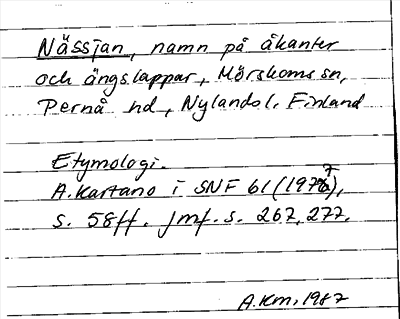 Nässjan, namn på åkanter
och ängslappar, Mörskoms sn,
Pernå hd, Nylands l, Finland
Etymologi.
A. Kartano i SNF 61 (1977),
s. 58ff. Jmf. s. 267, 277.
A.Km, 1987